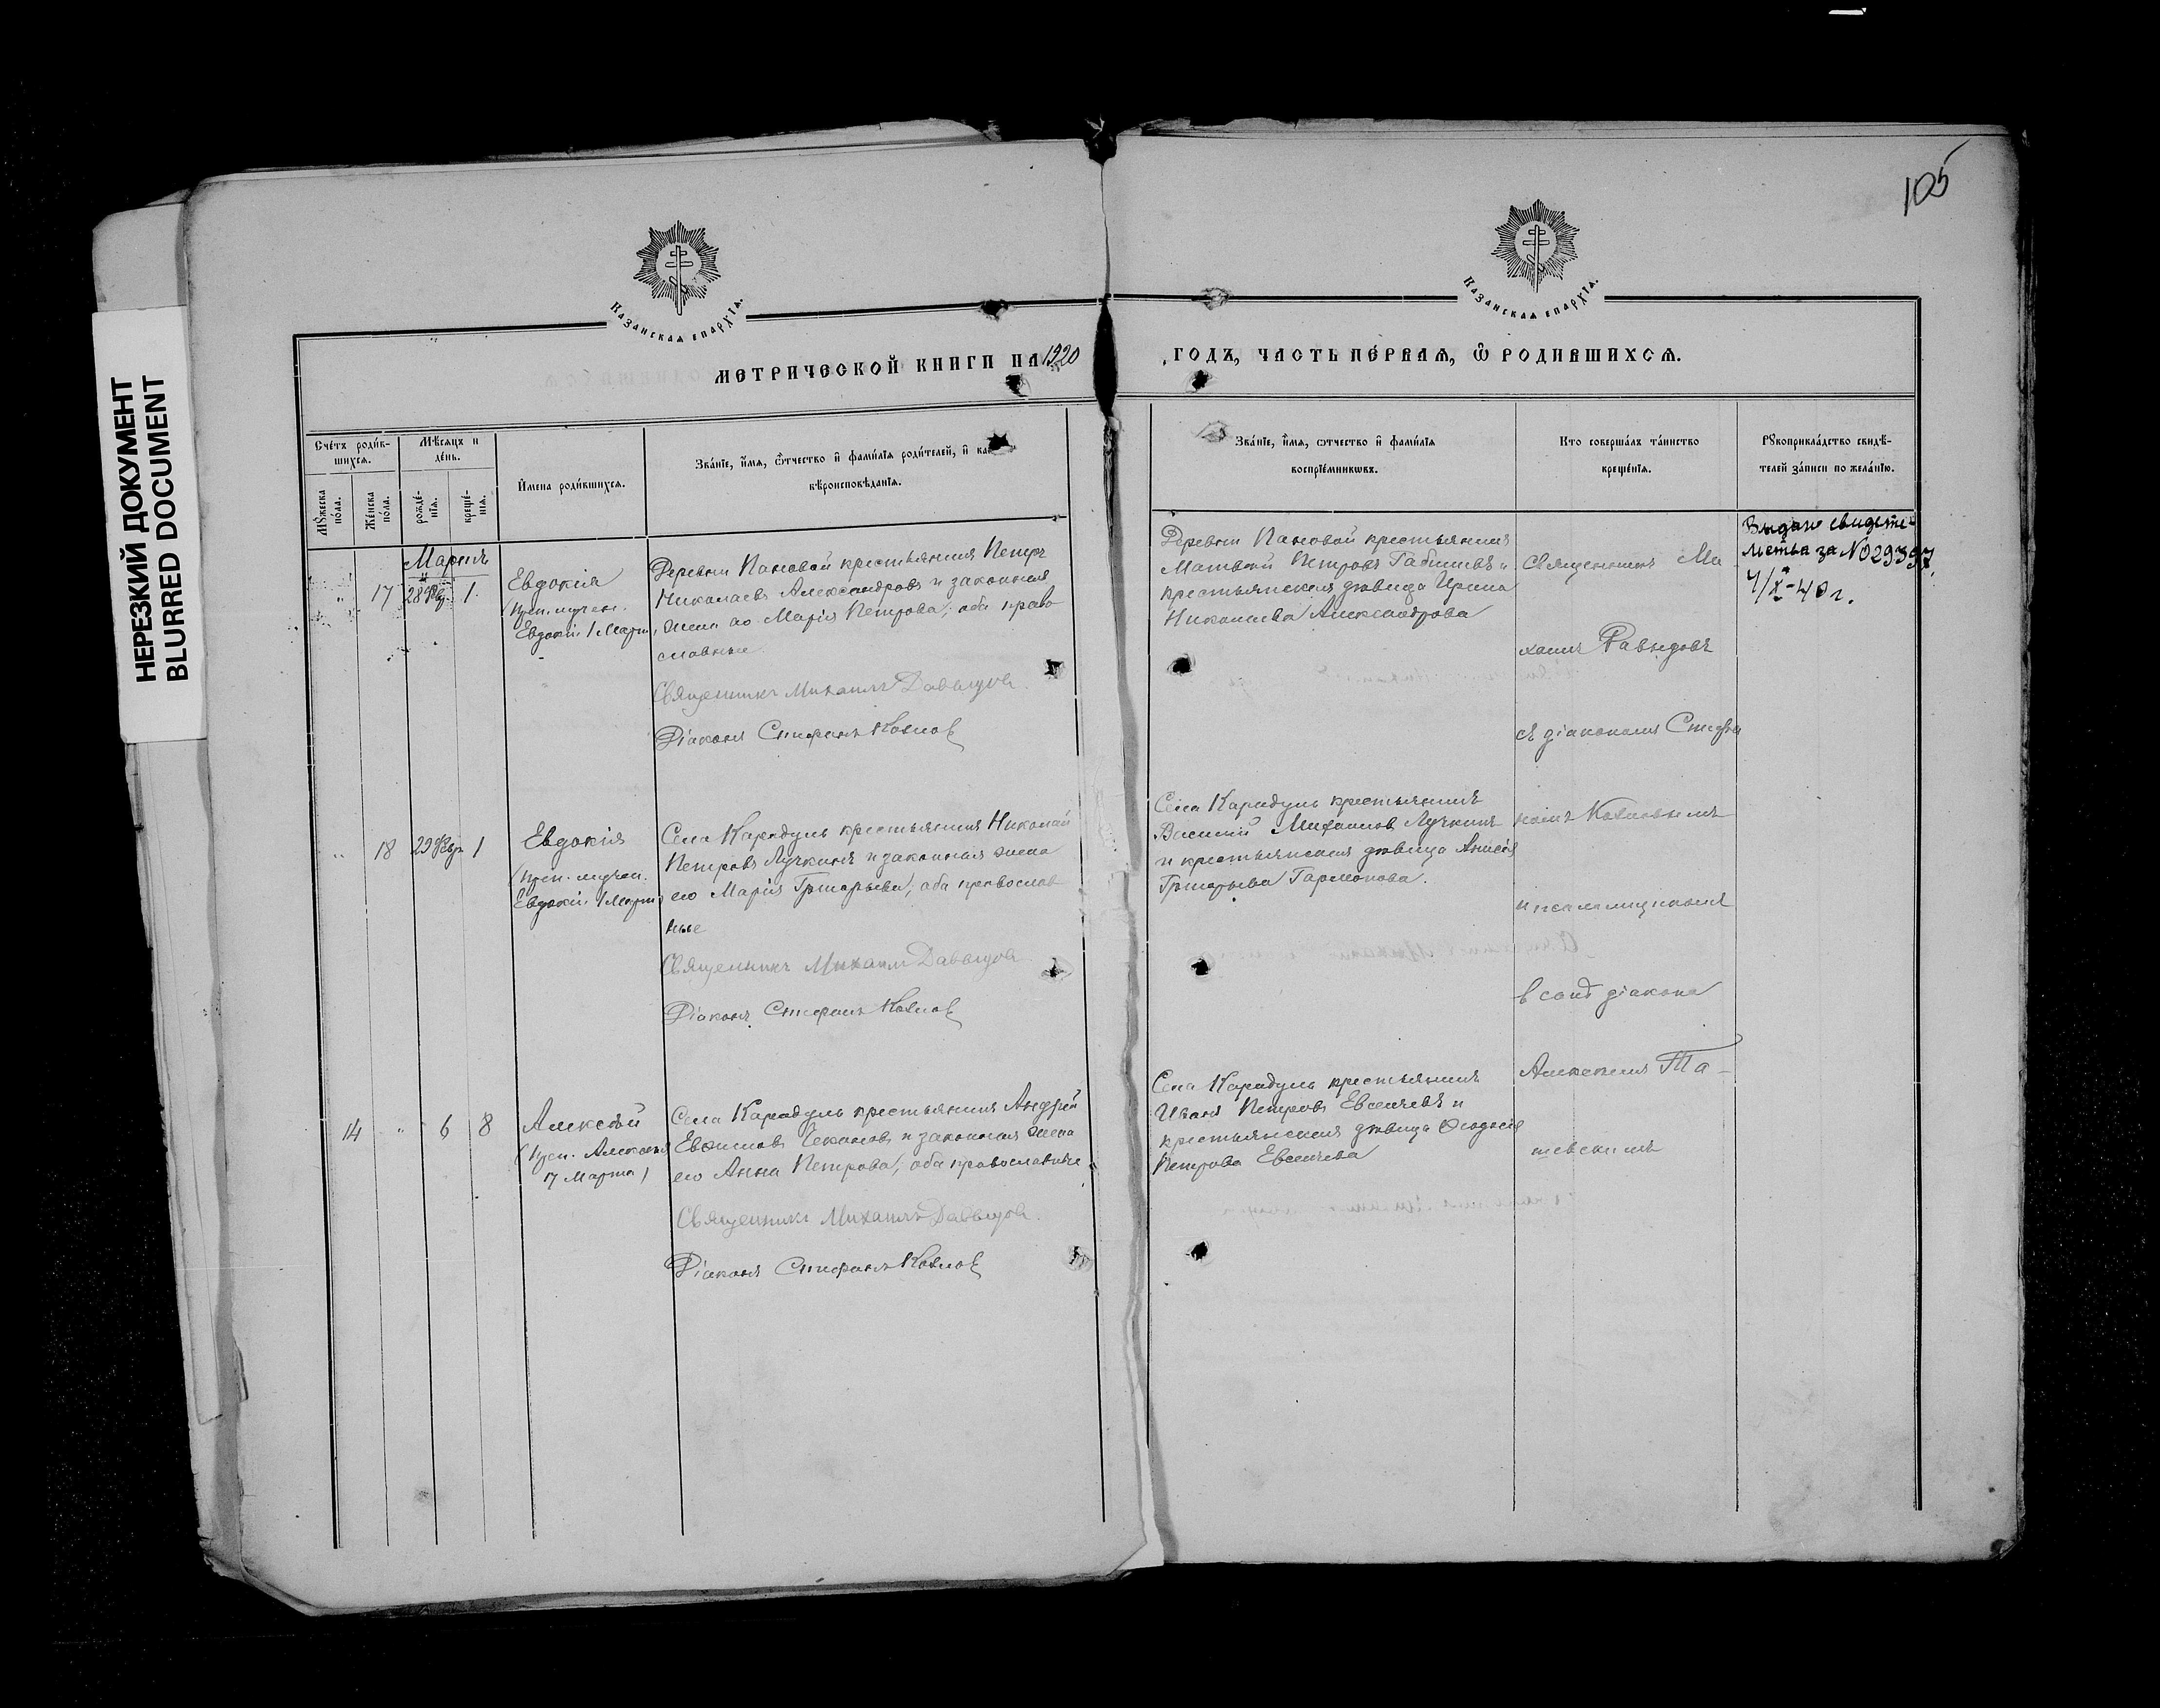 НЕРЕЗКИЙ ДОКУМЕНТ
BLURRED DOCUMENT
105
Казанская епархїѧ.
Казанская епархїѧ.
МЕТРИЧЕСКОЙ КНИГИ НА 1920
ГОДЪ, ЧАСТЬ ПЕ́РВАЯ, Ѡ҆ РОДИВШИХСЯ.
Сче́тъ роди́в-
шихсѧ.
Мꙋжеска
по́ла.
Же́нска
по́ла.
Мѣ́сѧцъ и
де́нь.
рожде́-
нїѧ.
креще́-
нїѧ.
И҆мена роди́вшихсѧ.
Зва́нїе, и҆́мѧ, ѻ҆́тчество и҆ фами́лїѧ роди́телей, и҆ как
вѣроисповѣ́данїѧ.
Зва́нїе, и҆́мѧ, ѻ҆тчество и҆ фами́лїѧ
воспрїе́мникѡвъ.
Кто соверша́лъ та́инство
креще́нїѧ.
Рꙋкоприкла́дство свидѣ́-
телей за́писи по жела́нїю.
Мартъ
" 17 28 Февр. 1.
Евдокія
(прп. мучен.
Евдокіи 1 Март.
Деревни Пановой крестьянинъ Петръ
Николаевъ Александровъ и законная
жена его Марія Петрова; оба право
славные
Священникъ Михаилъ Давыдов.
Діаконъ Стефанъ Козлов
Деревни Пановой крестьянинъ
Матвей Петровъ и
крестьянская дѣвица Ирина
Николаева Александрова
Священникъ Ми
хаилъ Давыдовъ
съ діакономъ Стефа
номъ Козловымъ
и псаломщикомъ
в санѣ діакона
Алексѣемъ Та-
шевскимъ
Выдано свидете-
льства за № 029397.
4/X-40 г.
" 18 29 Февр 1
Евдокія
(прп. мучен.
Евдокіи 1 Март)
Села Карадуль крестьянинъ Николай
Петровъ Лучкинъ и законная жена
его Марія Григорьева; оба православ
ные
Священникъ Михаилъ Давыдов
Діаконъ Стефанъ Козлов
Села Карадуль крестьянинъ
Василий Михаиловъ Лучкинъ
и крестьянская дѣвица Анисія
Григорьева Гармонова.
14 " 6 8
Алексѣй
(прп. Алексія
17 Марта)
Села Карадуль крестьянинъ Андрей
Евфимовъ Чекановъ и законная жена
его Анна Петрова; оба православные.
Священникъ Михаилъ Давыдов.
Діаконъ Стефанъ Козлов
Села Карадуль крестьянинъ
Иванъ Петровъ Евсеичевъ и
крестьянская дѣвица Ѳеодосія
Петрова Евсеичева